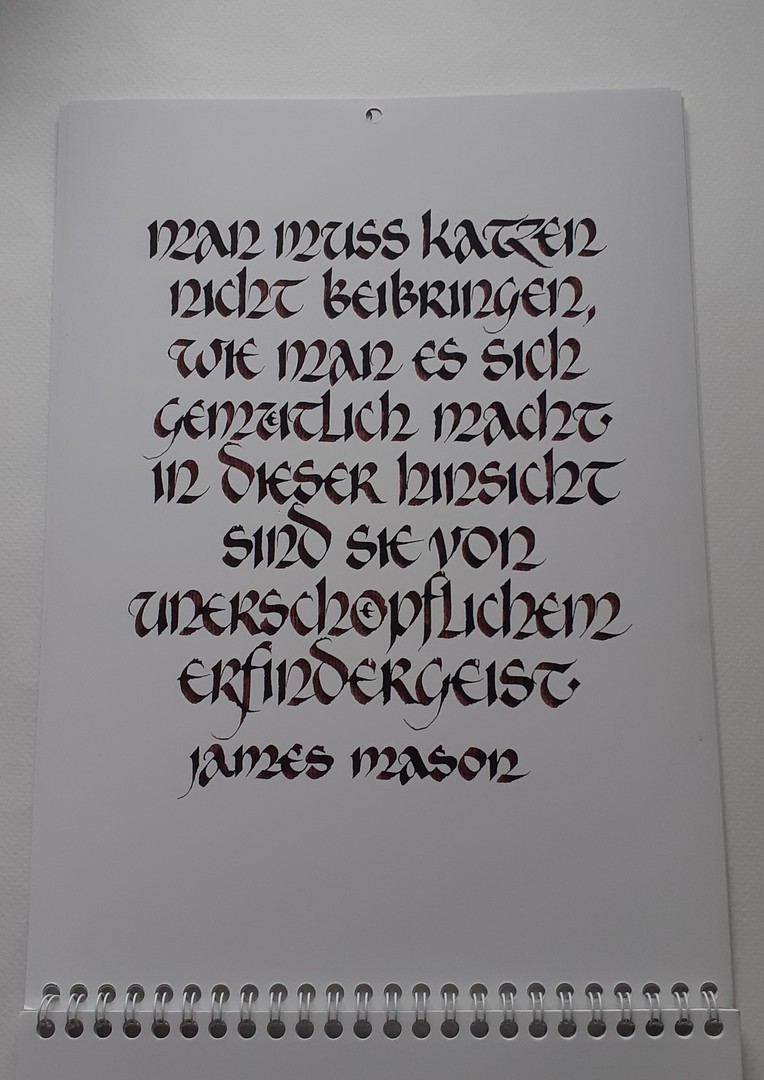 man muss katzen
nicht beibringen,
wie man es sich
gemütlich macht.
in dieser hinsicht
sind sie von
unerschöpflichem
erfindergeist.
james mason